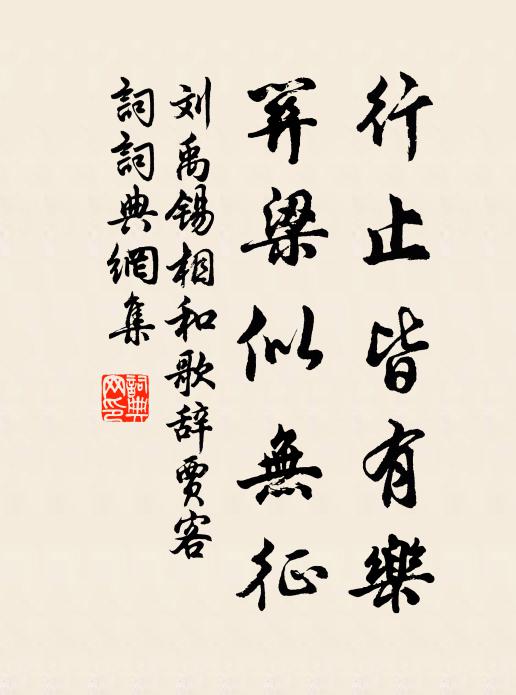 行止皆有樂
關梁似無征
刘禹锡相和歌辞賈客
詞詞典網集
詞典
网印